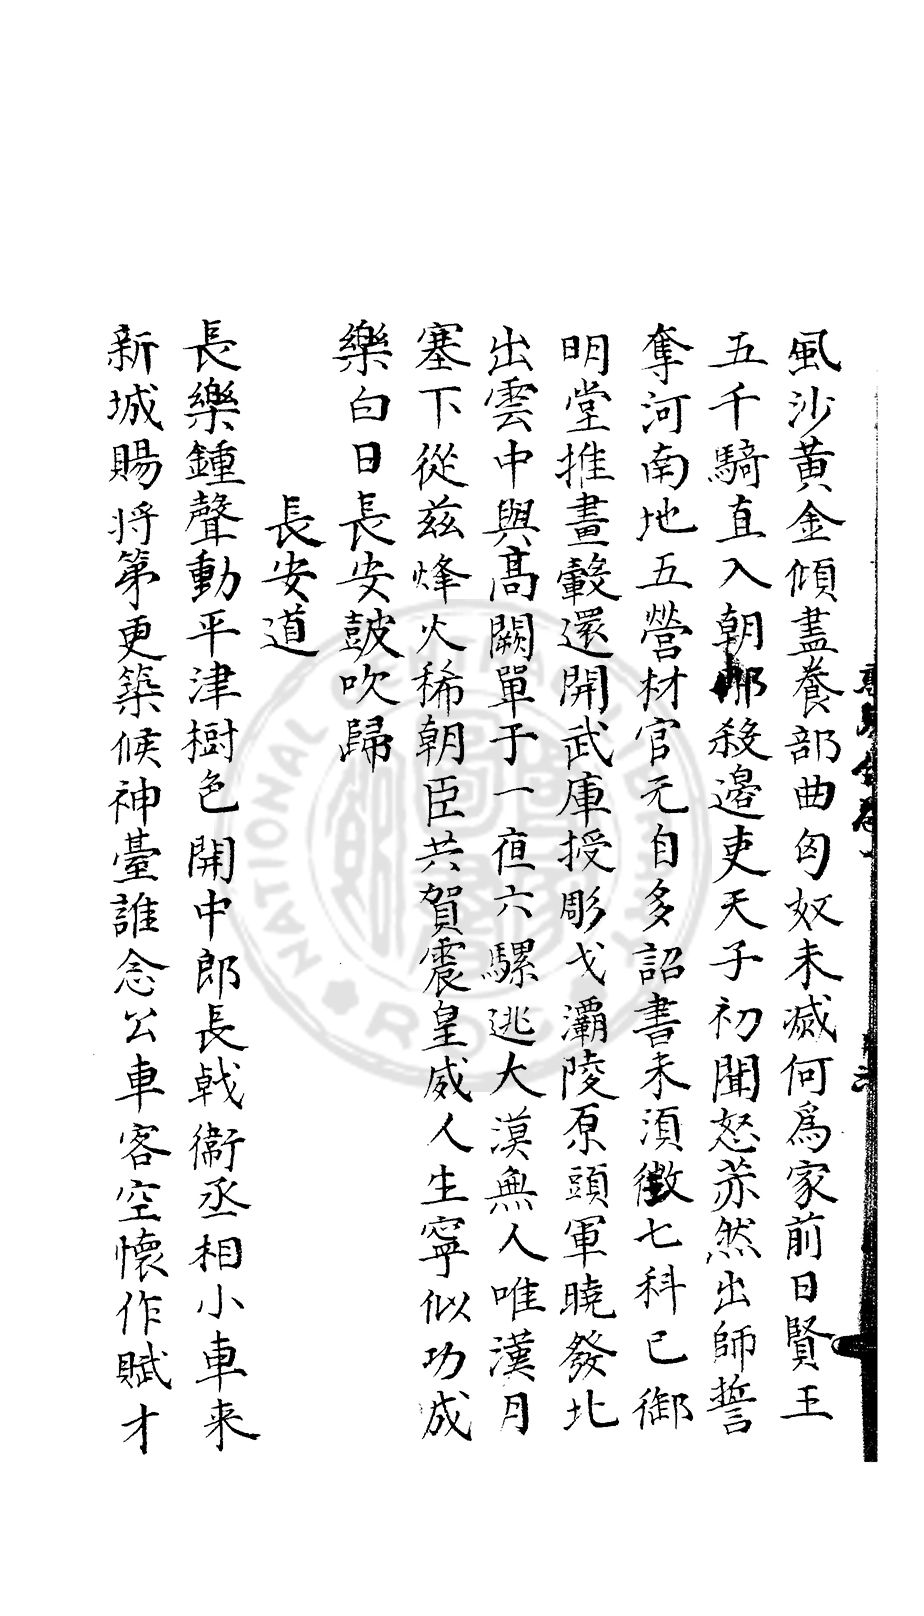 風沙黄金傾盡養部曲匈奴未滅何爲家前日賢王
五千騎直入朝那殺邊吏天子初聞怒荞然出師誓
奪河南地五營材官元自多詔書未須徵七科已御
明堂推畫轂還開武庫授彫戈灞陵原頭軍曉發北
出雲中與高闕單于一夜六騾逃大漠無人唯漢月
塞下從兹烽火稀朝臣共賀震皇威人生寧似功成
樂白日長安鼓吹歸
長安道
長樂鍾聲動平津樹色開中郎長戟衞丞相小車来
新城賜将第更築候神臺誰念公車客空懷作賦才
NATIONAL CENTRAL LIBRARY
R.O.C.